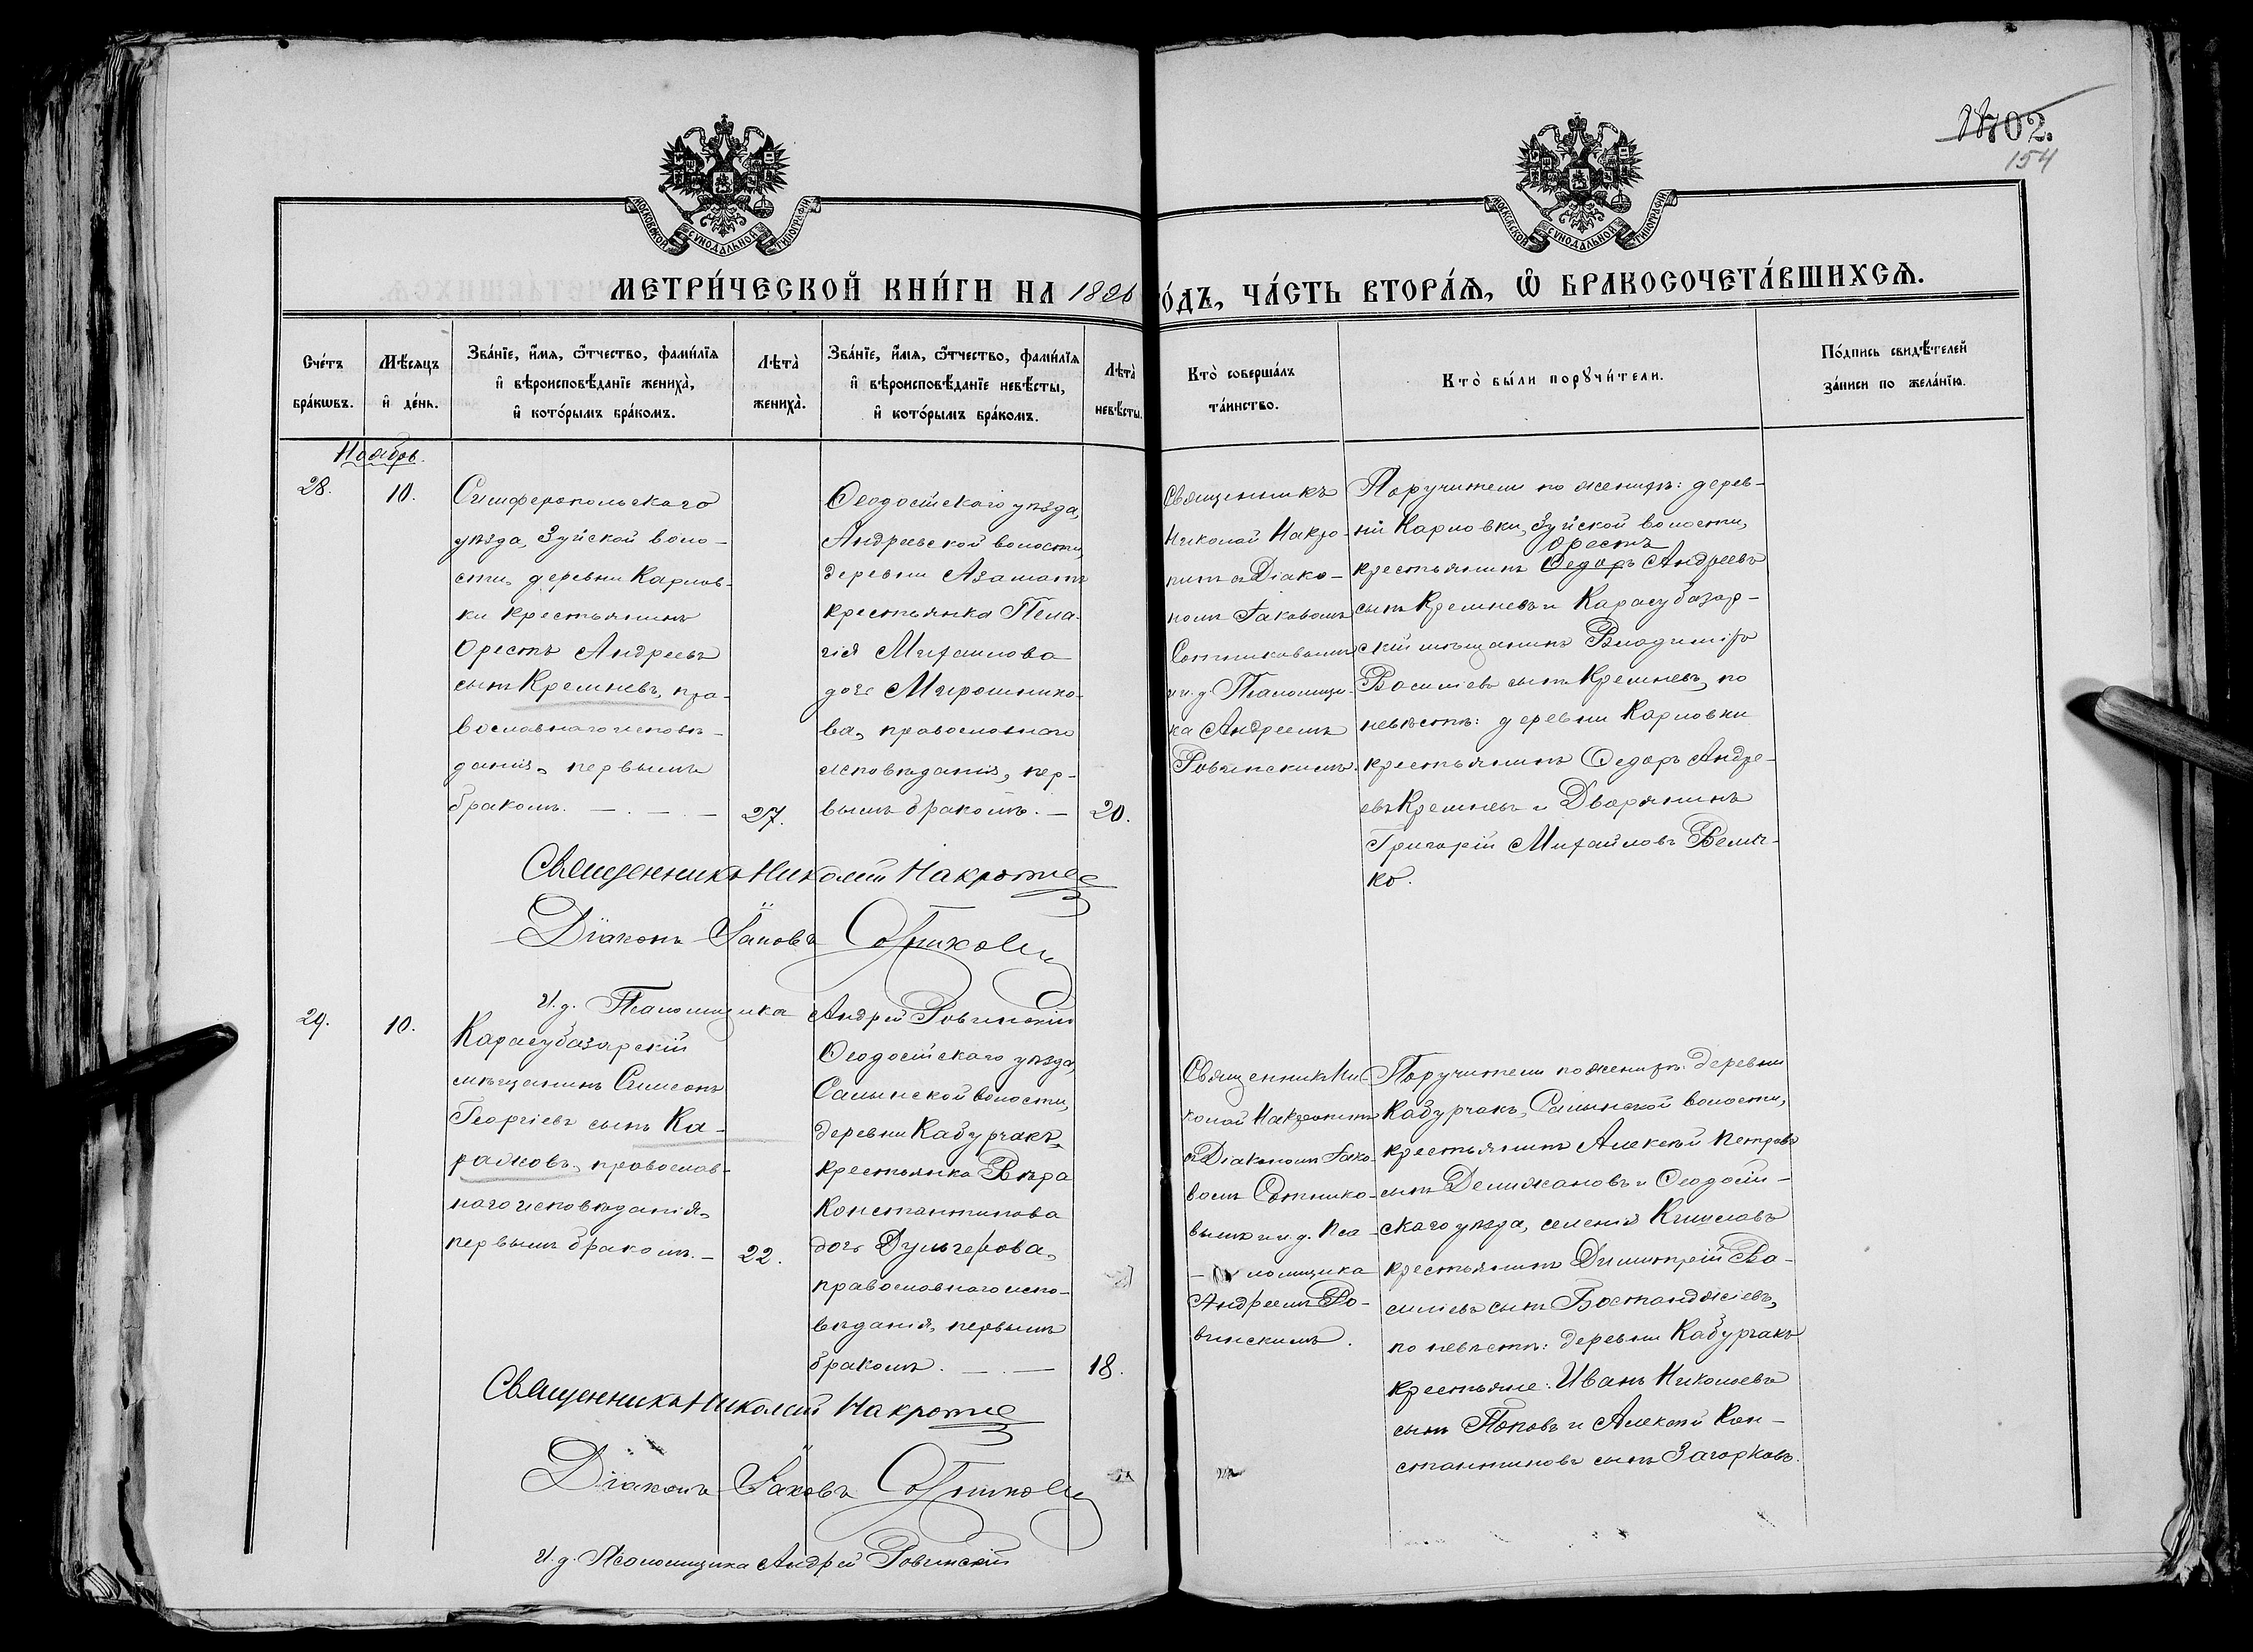 702.
154
МОСКОВСКОЙ СѴНОДАЛЬНОЙ ТИПОГРАФІИ
МОСКОВСКОЙ СѴНОДАЛЬНОЙ ТИПОГРАФІИ
МЕТРИ́ЧЕСКОЙ КНИ́ГИ НА 1896 ГО́ДЪ, ЧА́СТЬ ВТОРА́Ѧ, Ѽ БРАКОСОЧЕТА́ВШИХСѦ.
Сче́тъ
бра́кѡвъ.
Мѣ́сяцъ
и҆ де́нь.
Зва́нїе, и҆́мѧ, ѻ҆́тчество, фами́лїѧ
и҆ вѣроисповѣ́данїе жениха̀,
и҆ кото́рымъ бра́комъ.
Лѣта̀
жениха̀.
Зва́нїе, и҆́мѧ, ѻ҆́тчество, фами́лїѧ
и҆ вѣроисповѣ́данїе невѣ́сты,
и҆ кото́рымъ бра́комъ.
Лѣта̀
невѣ́сты.
Кто̀ соверша́лъ
та́инство.
Кто̀ бы́ли порꙋчи́тели.
По́дпись свидѣ́телей
за́писи по жела́нїю.
Ноябрь.
28.
10.
Симферопольскаго
уѣзда, Зуйской воло-
сти, деревни Карлов-
ки крестьянинъ
Орестъ Андреевъ
сынъ Кремневъ, пра-
вославнаго исповѣ-
данія, первымъ
бракомъ.
27.
Ѳеодосійскаго уѣзда,
Андреевской волости,
деревни Азаматъ
крестьянка Пела-
гія Михаилова
дочь Мирошнико-
ва, православнаго
исповѣданія, пер-
вымъ бракомъ.
20.
Священникъ
Николай Накро-
пинъ съ Діако-
номъ Іаковомъ
Сотниковымъ
и и. д. Псаломщи-
ка Андреемъ
Ровинскимъ.
Поручители по женихѣ: дерев-
ни Карловки, Зуйской волости,
Орестъ
крестьянинъ Ѳедоръ Андреевъ
сынъ Кремневъ и Карасубазар-
скій мѣщанинъ Владиміръ
Василіевъ сынъ Кремневъ, по
невѣстѣ: деревни Карловки
крестьянинъ Ѳедоръ Андре-
евъ Кремневъ и Дворянинъ
Григорій Михайловъ Велич-
ко.
Священникъ Николай
Діаконъ Іаковъ Сотниковъ
И. д. Псаломщика Андрей Ровинскій
29.
10.
Карасубазарскій
мѣщанинъ Симеонъ
Георгіевъ сынъ Ка-
раковъ, православ-
наго исповѣданія,
первымъ бракомъ.
22.
Ѳеодосійскаго уѣзда,
Салынской волости,
деревни Кабурчакъ
крестьянка Вѣра
Константинова
дочь Дульгерова,
православнаго испо-
вѣданія, первымъ
бракомъ.
18.
Священникъ Ни-
колай Накропинъ
съ Діакономъ Іако-
вомъ Сотнико-
вымъ и и. д. Пса-
ломщика
Андреемъ Ро-
винскимъ.
Поручители по женихѣ: деревни
Кабурчакъ, Салынской волости,
крестьянинъ Алексѣй Петровъ
сынъ Делижановъ и Ѳеодосій-
скаго уѣзда, селенія Кишлавъ
крестьянинъ Димитрій Ва-
силіевъ сынъ Бостанджіевъ,
по невѣстѣ: деревни Кабурчакъ
крестьяне: Иванъ Николаевъ
сынъ Поповъ и Алексѣй Кон-
стантиновъ сынъ Загорковъ.
Священникъ Николай
Діаконъ Іаковъ Сотниковъ
И. д. Псаломщика Андрей Ровинскій